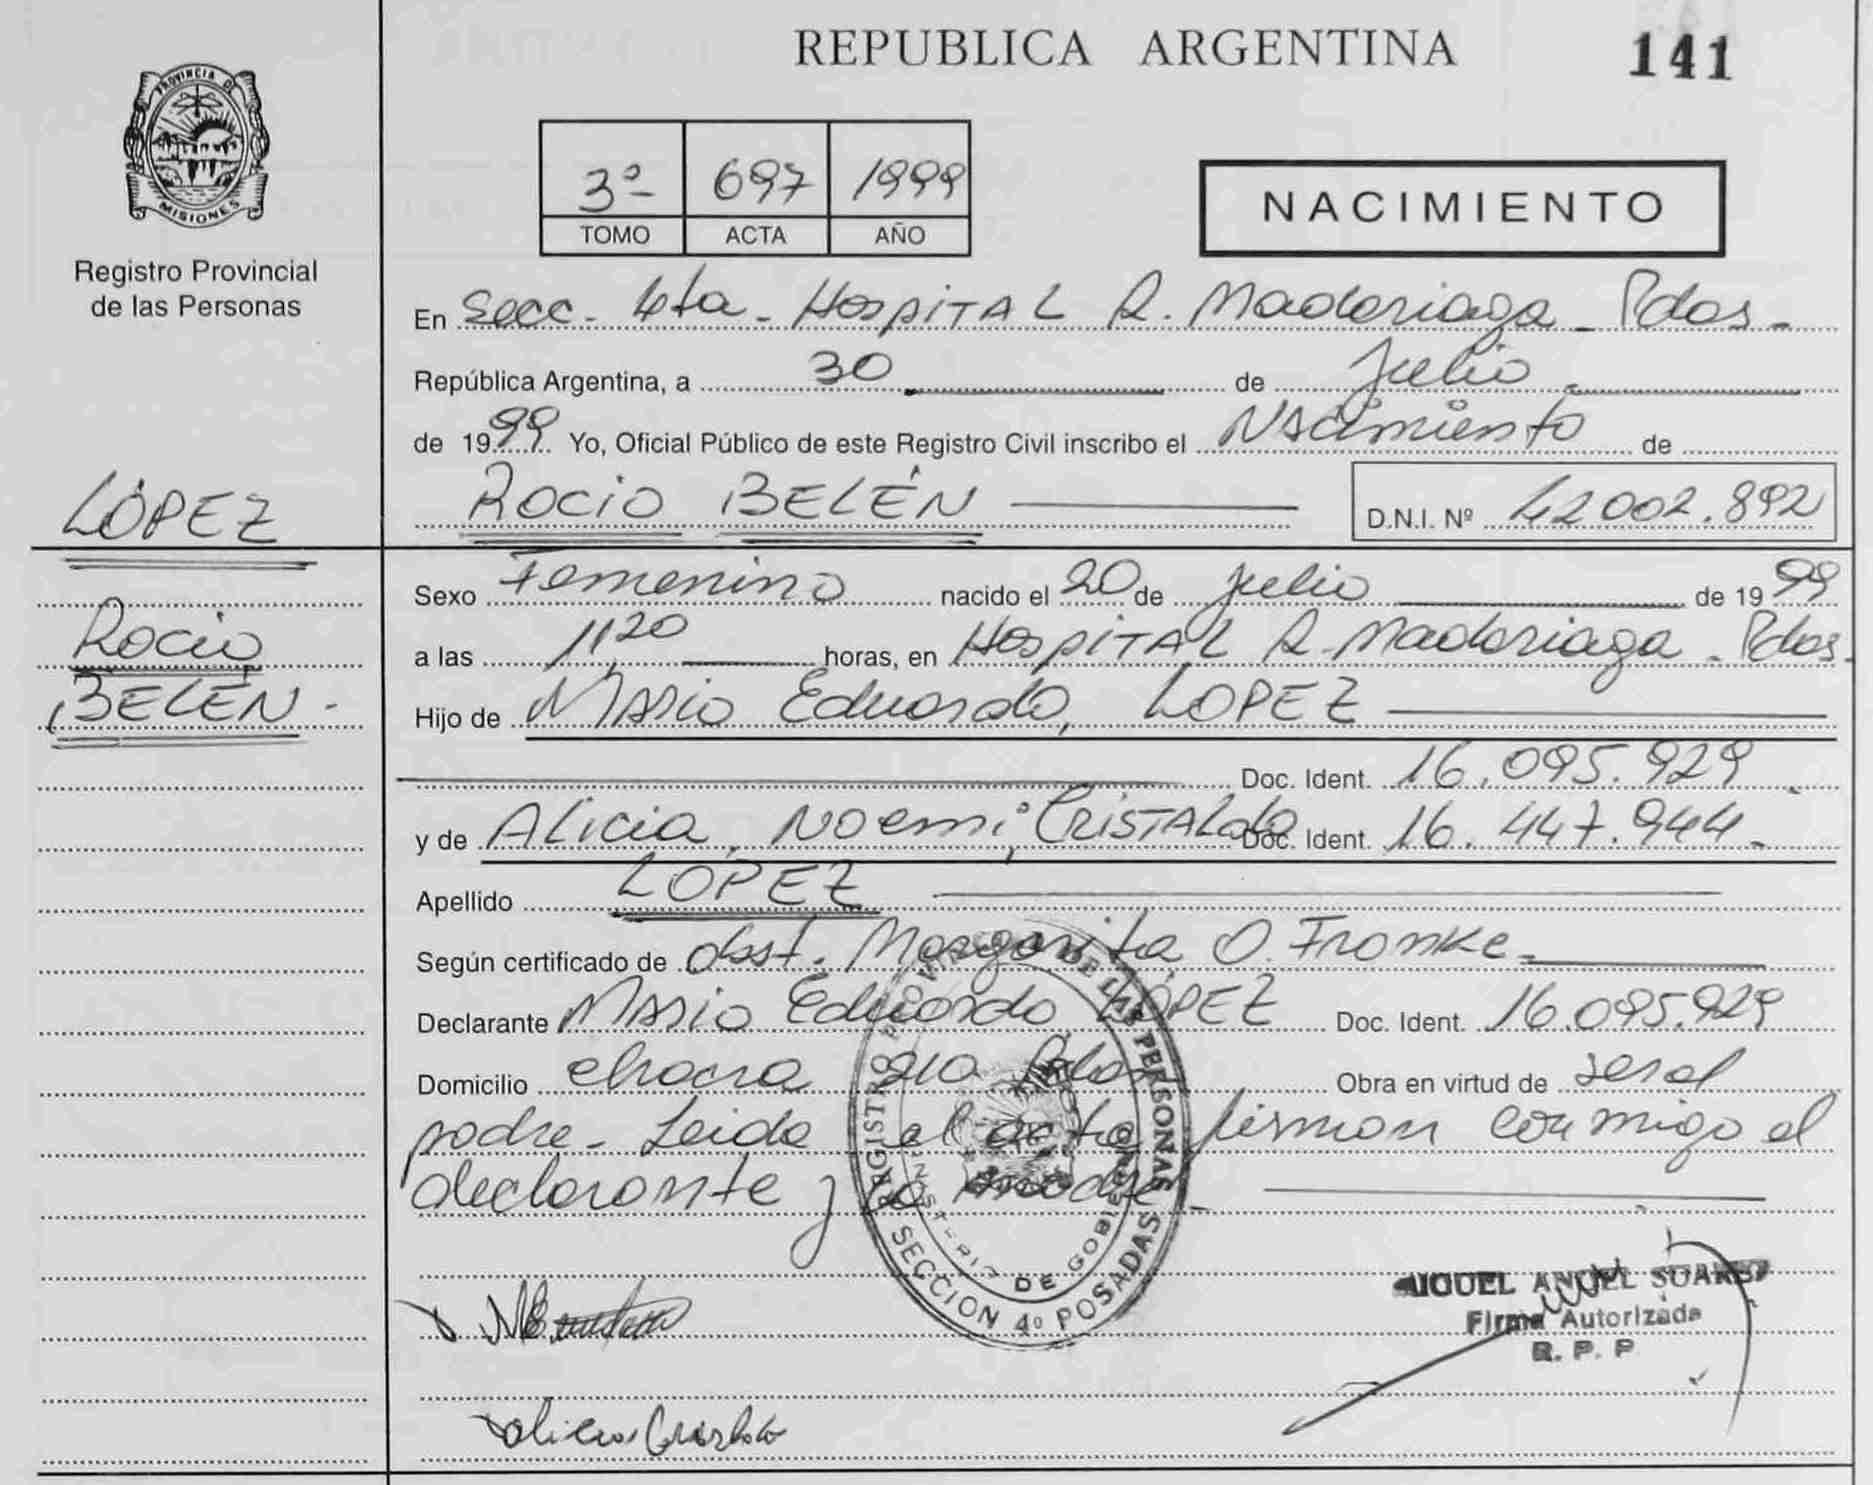 REPUBLICA ARGENTINA
141
PROVINCIA DE
MISIONES
Registro Provincial
de las Personas
3º 697 1999
TOMO ACTA AÑO
NACIMIENTO
En Secc. 4ta - HOSPITAL R. Madariaga - Pdas -
República Argentina, a 30 de Julio
de 1999. Yo, Oficial Público de este Registro Civil inscribo el Nacimiento de
ROCIO BELÉN
D.N.I. Nº 42002.892
LOPEZ
Rocio
BELÉN -
Sexo Femenino nacido el 20 de Julio de 1999
a las 1120 horas, en HOSPITAL R. Madariaga - Pdas.
Hijo de Mario Eduardo, LOPEZ
Doc. Ident. 16.095.929
y de Alicia Noemi, CRISTALDO Doc. Ident. 16.447.944 -
Apellido LOPEZ
Según certificado de Obst. Margarita O. Fromke -
Declarante Mario Eduardo LÓPEZ Doc. Ident. 16.095.929
Domicilio chacra Obra en virtud de ser el
padre - Leida el acta firman conmigo el
declarante y la madre
REGISTRO PROVINCIAL DE LAS PERSONAS
MINISTERIO DE GOBIERNO
SECCION 4º POSADAS
MIGUEL ANGEL SUAREZ
Firma Autorizada
R. P. P
Alicia Cristaldo